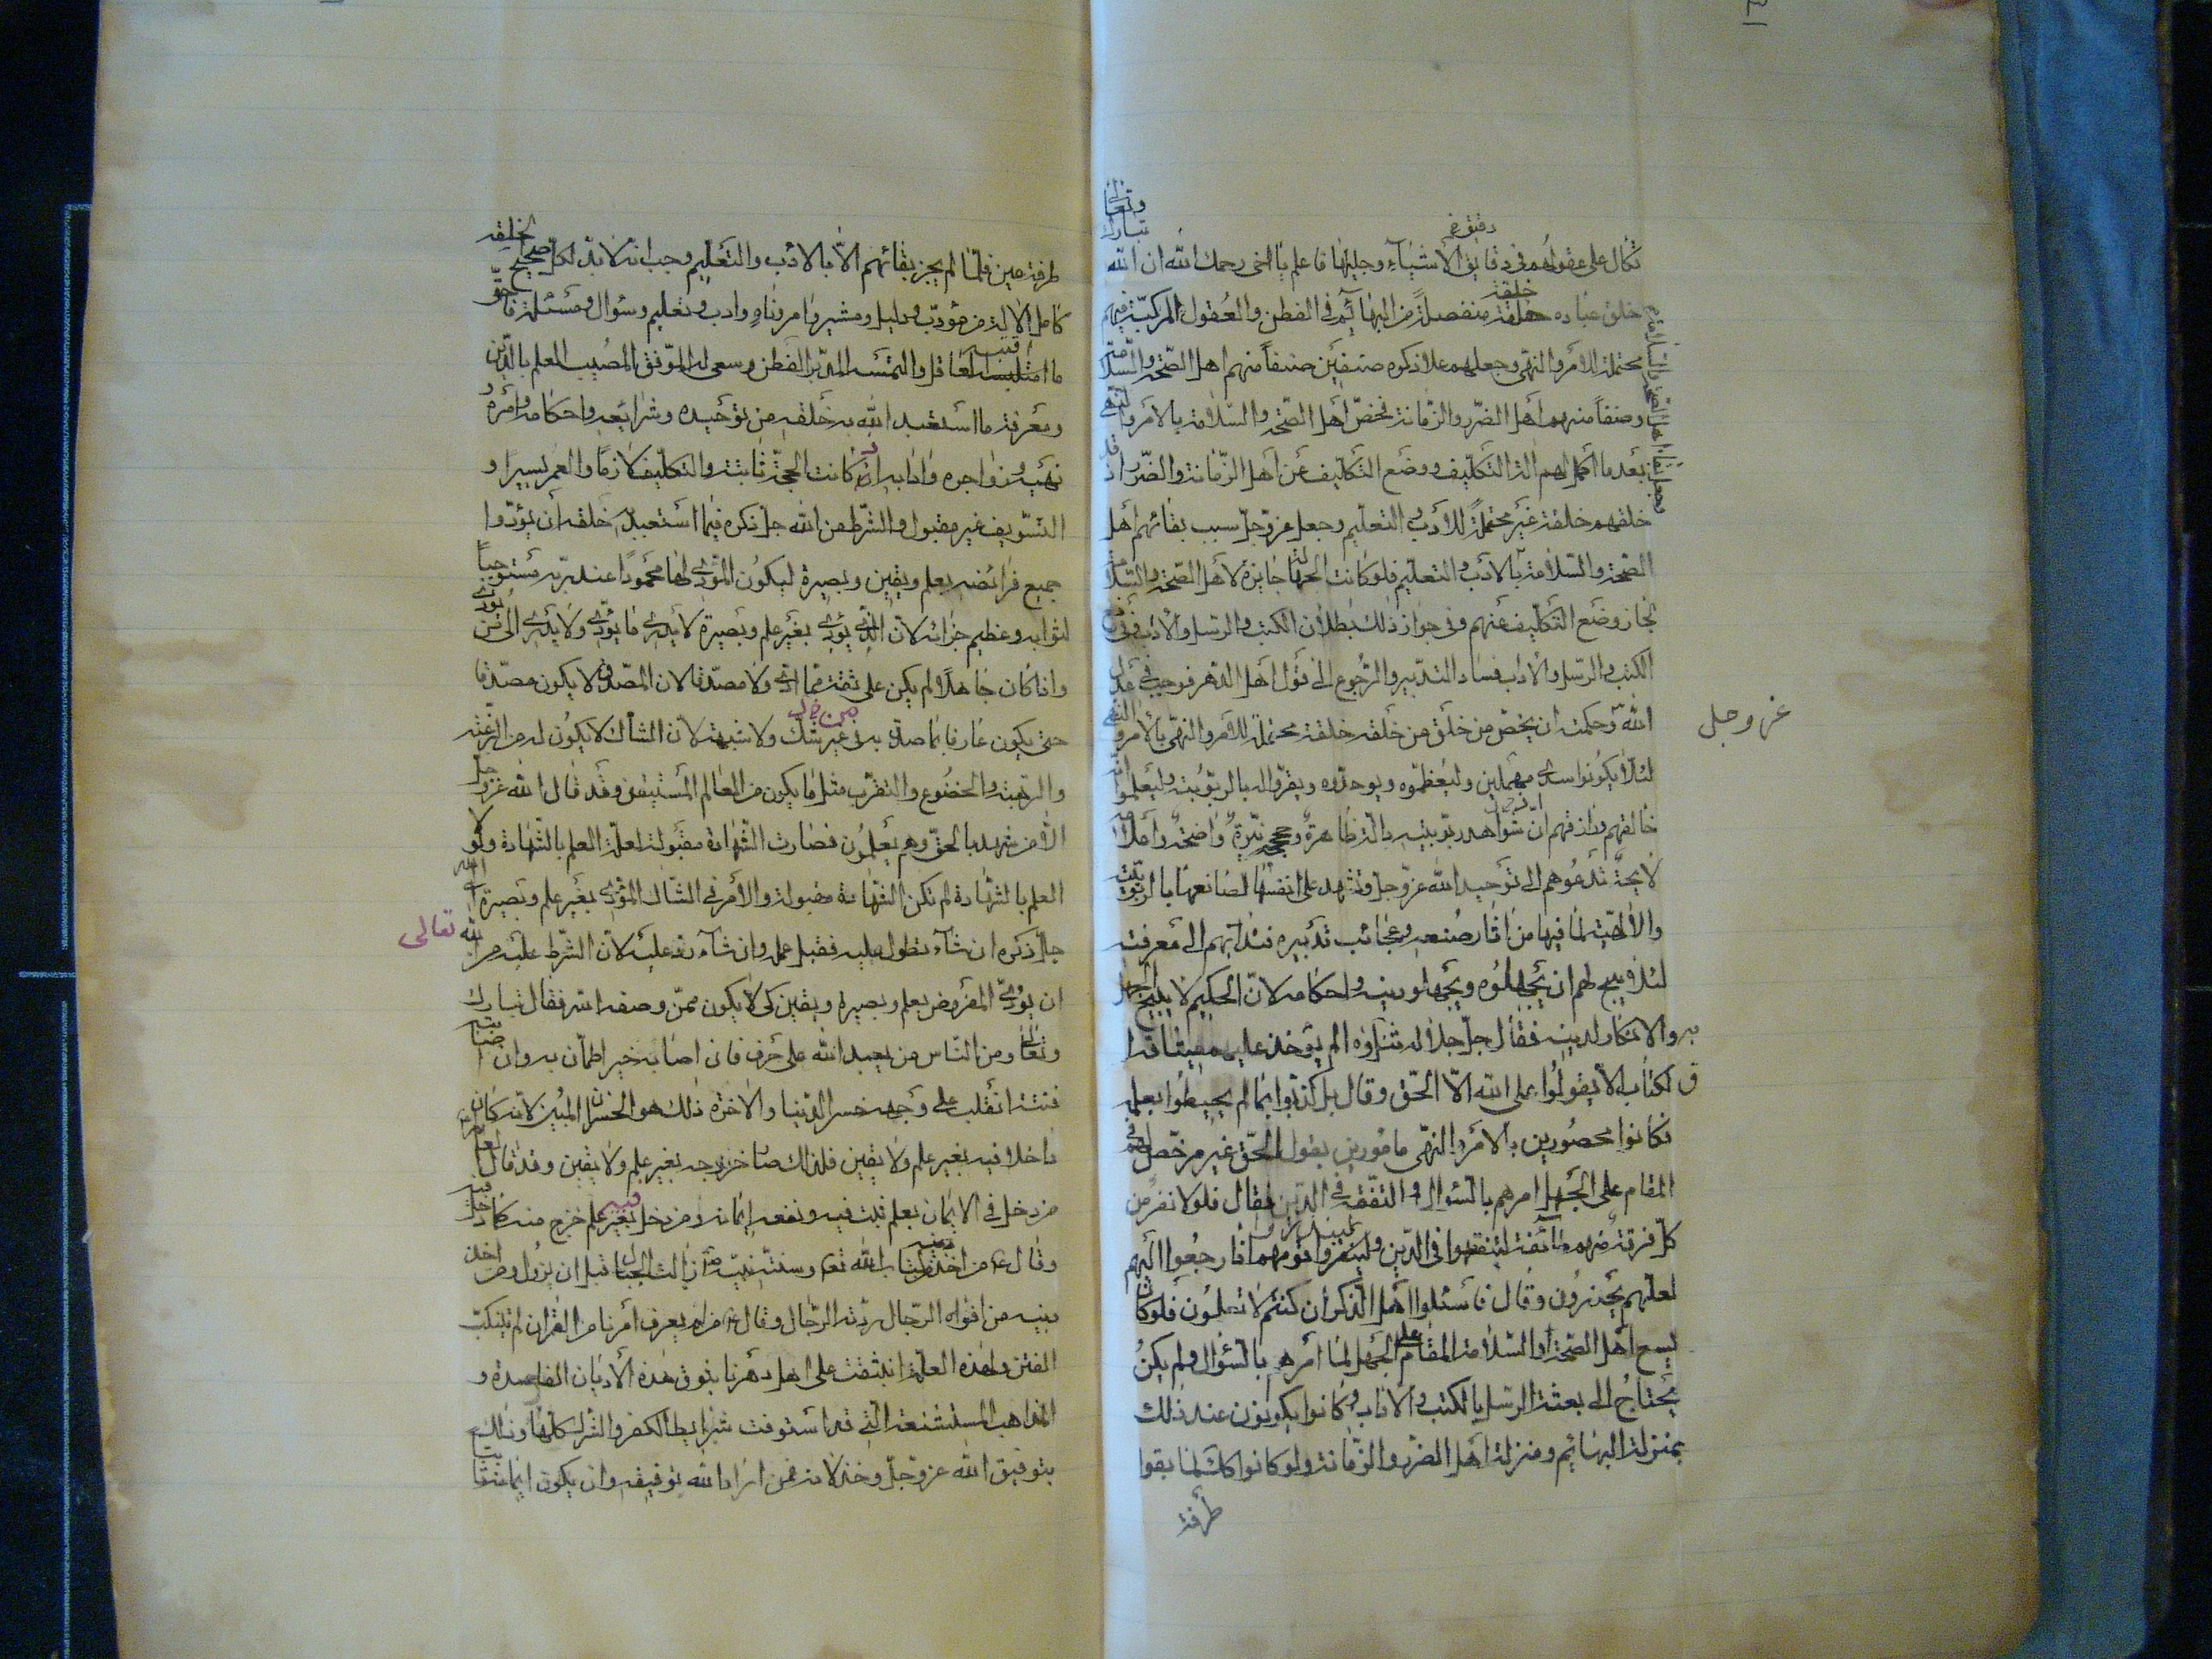 وتعالى
تبارك
دقيق خ
تكال على عقولهم في دقايق الاشياء وجليلها فاعلم يا اخي رحمك الله ان الله
خلقة
خلق عباده خلقة منفصلة من البهائم في الفطن والعقول المركبة فيهم
محتملة للامر والنهي وجعلهم جل ذكره صنفين صنفاً منهم اهل الصحة والسلامة
وصنفاً منهم اهل الضرر والزمانة فخصّ اهل الصحة والسلامة بالامر والنهي
بعد ما اكمل لهم الة التكليف ووضع التكليف عن اهل الزمانة والضرر اذ قد
خلقهم خلقة غير محتملة للادب والتعليم وجعل عزوجلّ سبب بقائهم اهل
الصحة والسلامة وجعل بقاء اهل الصحة والسلامة
الصحة والسلامة بالادب والتعليم فلو كانت الجهالة جايزة لاهل الصحة والسلامة
لجاز وضع التكليف عنهم وفي جواز ذلك بطلان الكتب والرسل والاداب وفي رفع
الكتب والرسل والاداب فساد التدبير والرجوع الى قول اهل الدهر فوجب في عدل
الله وحكمته ان يخصّ من خلق من خلقه خلقة محتملة للامر والنهي بالامر والنهي
عز وجل
لئلا يكونوا سدى مهملين وليعظموه ويوحدوه ويقروا له بالربوبية وليعلموا انه
خالقهم ورازقهم اذ شواهد ربوبيته دالة ظاهرة وحججه نيرة واضحة واعلامه
لايحة تدعوهم الى توحيد الله عزوجل وتشهد على انفسها لصانعها بالربوبية
والالهية لما فيها من اثار صنعه وعجائب تدبيره فندبهم الى معرفته
لئلا يبيح لهم ان يجهلوه ويجهلوا دينه واحكامه لان الحكيم لا يبيح الجهل
به والانكار لدينه فقال جلّ جلاله ثناؤه الم يؤخذ عليهم ميثاق
الكتاب ان لا يقولوا على الله الاّ الحق وقال بل كذبوا بما لم يحيطوا بعلمه
فكانوا محصورين بالامر والنهي مامورين بقول الحق غير مرخّص لهم في
المقام على الجهل امرهم بالسؤال والتفقه في الدين فقال فلولا نفر من
كلّ فرقة منهم طائفة ليتفقهوا في الدين ولينذروا قومهم اذا رجعوا اليهم
لعلهم يحذرون وقال فاسئلوا اهل الذكر ان كنتم لا تعلمون فلو كان
يسع اهل الصحة والسلامة المقام على الجهل لما امرهم بالسؤال ولم يكن
يحتاج الى بعثة الرسل بالكتب والاداب وكانوا يكونون عند ذلك
بمنزلة البهائم ومنزلة اهل الضرر والزمانة ولو كانوا كذلك لما بقوا
طرفة
طرفة عين فلمّا لم يجز بقائهم الاّ بالادب والتعليم وجب انه لابدّ لكلّ صحيح الخلقة
كامل الالة من مؤدب ودليل ومشير وامر وناه وادب وتعليم وسؤال ومسئلة فاحق
ما اقتبسه العاقل والتمسه المتدبر الفطن وسعى له الموفق المصيب العلم بالدين
ومعرفة ما استعبد الله به خلقه من توحيده وشرايعه واحكامه وامره و
نهيه وزواجره وادابه اذ كانت الحجّة ثابتة والتكليف لازماً والعمر يسيراً و
التسويف غير مقبول والشرط من الله جل ذكره فيما استعبد به خلقه ان يؤدوا
جميع فرائضه بعلم ويقين وبصيرة ليكون المؤدي لها محموداً عند ربه مستوجباً
لثوابه وعظيم جزائه لان الذي يؤدي بغير علم وبصيرة لا يدري ما يؤدي ولا يدري الى من يؤدي
واذا كان جاهلاً لم يكن على ثقة مما ادى ولا مصدّقا لان المصدّق لا يكون مصدّقا
حتى يكون عارفا بما صدّق به من غير شك ولا شبهة لان الشاك لا يكون له من الرغبة
والرهبة والخضوع والتقرب مثل ما يكون من العالم المستيقن وقد قال الله عزوجل
الاّ من شهد بالحقّ وهم يعلمون فصارت الشهادة مقبولة لعلة العلم بالشهادة ولولا
العلم بالشهادة لم تكن الشهادة مقبولة والامر في الشاك المؤدي بغير علم وبصيرة الى الله
تعالى
جلّ ذكره ان شاء تطول عليه فقبل عمله وان شاء رد عليه لان الشرط عليه من الله
ان يؤدي المفروض بعلم وبصيرة ويقين كي لا يكون ممن وصفه الله فقال تبارك
وتعالى ومن الناس من يعبد الله على حرف فان اصابه خير اطمأن به وان اصابته
فتنة انقلب على وجهه خسر الدنيا والاخرة ذلك هو الخسران المبين لانه كان
داخلا فيه بغير علم ولا يقين فلذلك صار خروجه بغير علم ولا يقين وقد قال العالم
من دخل في الايمان بعلم ثبت فيه ونفعه ايمانه ومن دخل فيه بغير علم خرج منه كما دخل فيه
وقال ع من اخذ دينه من كتاب الله تع وسنة نبيه ص زالت الجبال قبل ان يزول ومن اخذ
دينه من افواه الرجال ردته الرجال وقال ع من لم يعرف امرنا من القران لم يتنكب
الفتن ولهذه العلة انبثقت على اهل دهرنا بثوق هذه الاديان الفاسدة و
المذاهب المستشنعة التي قد استوفت شرايط الكفر والشرك كلها وذلك
بتوفيق الله عزوجلّ وخذلانه فمن اراد الله توفيقه وان يكون ايمانه ثابتا